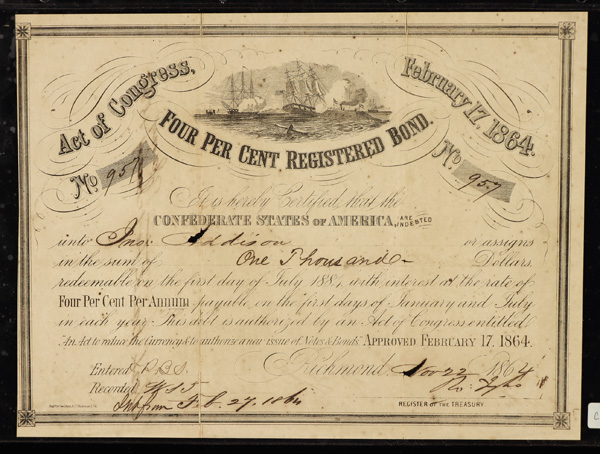 Act of Congress, February 17, 1864.
FOUR PER CENT. REGISTERED BOND.
No 957
No 957
It is hereby Certified that the
CONFEDERATE STATES OF AMERICA, ARE INDEBTED
unto Jno. Addison or assigns
in the sum of One Thousand Dollars
redeemable on the first day of July 188 , with interest at the rate of
Four Per Cent Per Annum payable on the first days of January and July
in each year. This debt is authorized by an Act of Congress entitled
"An Act to reduce the Currency & to authorize a new issue of Notes & Bonds" APPROVED FEBRUARY 17, 1864.
Entered
Richmond, Nov 22 1864
Recorded
Int from Feb. 27. 1864
Ro: Tyler
REGISTER OF THE TREASURY.